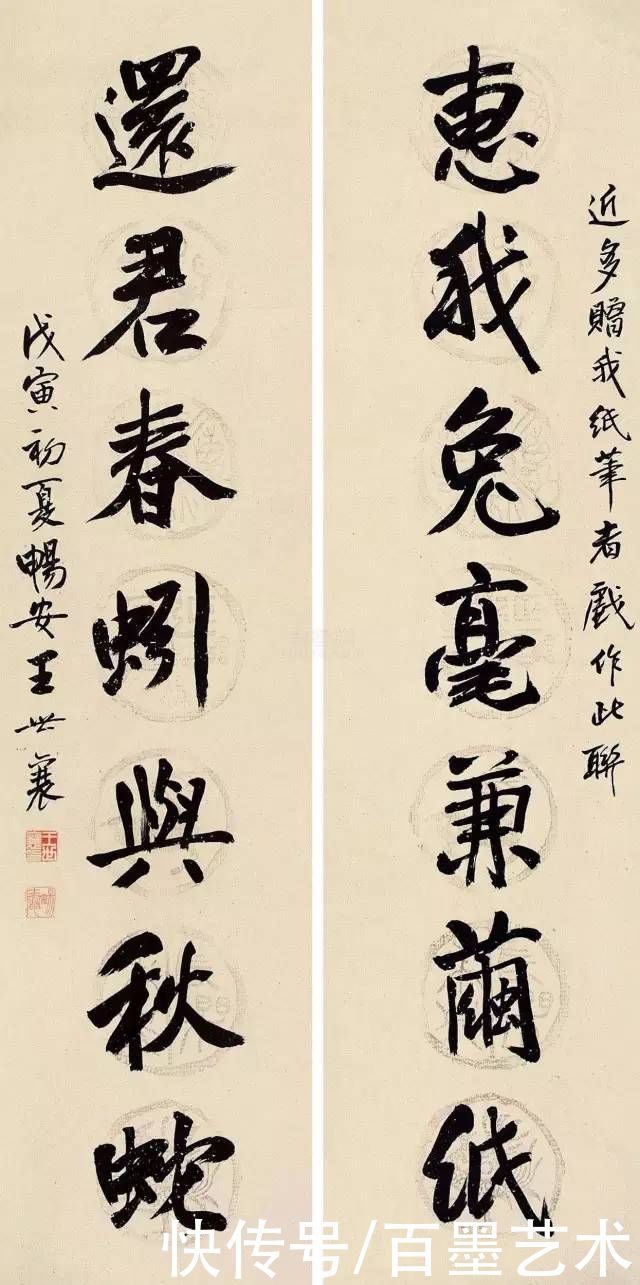 近多贈我紙筆者戲作此聯
惠我兔毫兼繭紙
還君春蚓與秋蛇
戊寅初夏暢安王世襄
快传号/百墨艺术